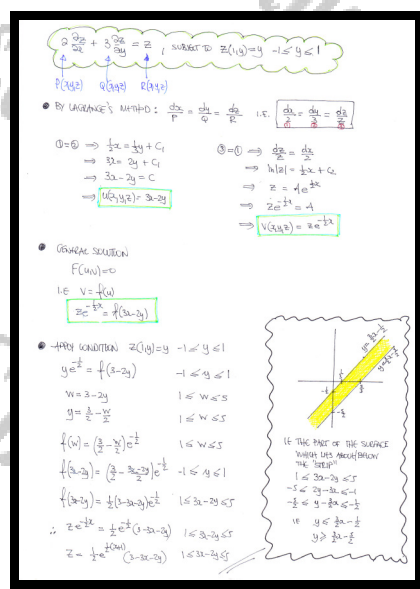 2 ∂z/∂x + 3 ∂z/∂y = z , SUBJECT TO z(1,y)=y -1≤y≤1
P(x,y,z) Q(x,y,z) R(x,y,z)
● BY LAGRANGE'S METHOD: dx/P = dy/Q = dz/R I.E. dx/2 = dy/3 = dz/z
①=② ⇒ ½x = ⅓y + C₁
⇒ 3x = 2y + C₁
⇒ 3x-2y = C
⇒ u(x,y,z) = 3x-2y
③=① ⇒ dz/z = dx/2
⇒ ln|z| = ½x + C₂
⇒ z = Ae^{½x}
⇒ ze^{-½x} = A
⇒ V(x,y,z) = ze^{-½x}
● GENERAL SOLUTION
F(u,v)=0
I.E V = f(u)
ze^{-½x} = f(3x-2y)
● APPLY CONDITION z(1,y)=y -1≤y≤1
ye^{-½} = f(3-2y) -1≤y≤1
W = 3-2y 1≤W≤5
y = 3/2 - W/2
f(w) = (3/2 - W/2)e^{-½} 1≤W≤5
f(3x-2y) = (3/2 - (3x-2y)/2)e^{-½} -1≤y≤1
f(3x-2y) = ½(3-3x+2y)e^{-½} 1≤3x-2y≤5
∴ ze^{-½x} = ½e^{-½}(3-3x+2y) 1≤3x-2y≤5
z = ½e^{½(x-1)}(3-3x+2y) 1≤3x-2y≤5
y=3/2x-1/2
y=3/2x-5/2
IE THE PART OF THE SURFACE
WHICH LIES ABOVE/BELOW
THE "STRIP"
1≤3x-2y≤5
-5≤2y-3x≤-1
-5/2≤y-3/2x≤-1/2
IE y≤3/2x-1/2
y≥3/2x-5/2